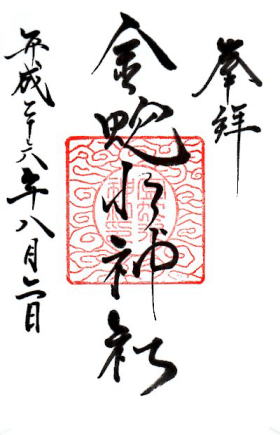 奉拝
金蛇水神社
平成二十六年八月六日